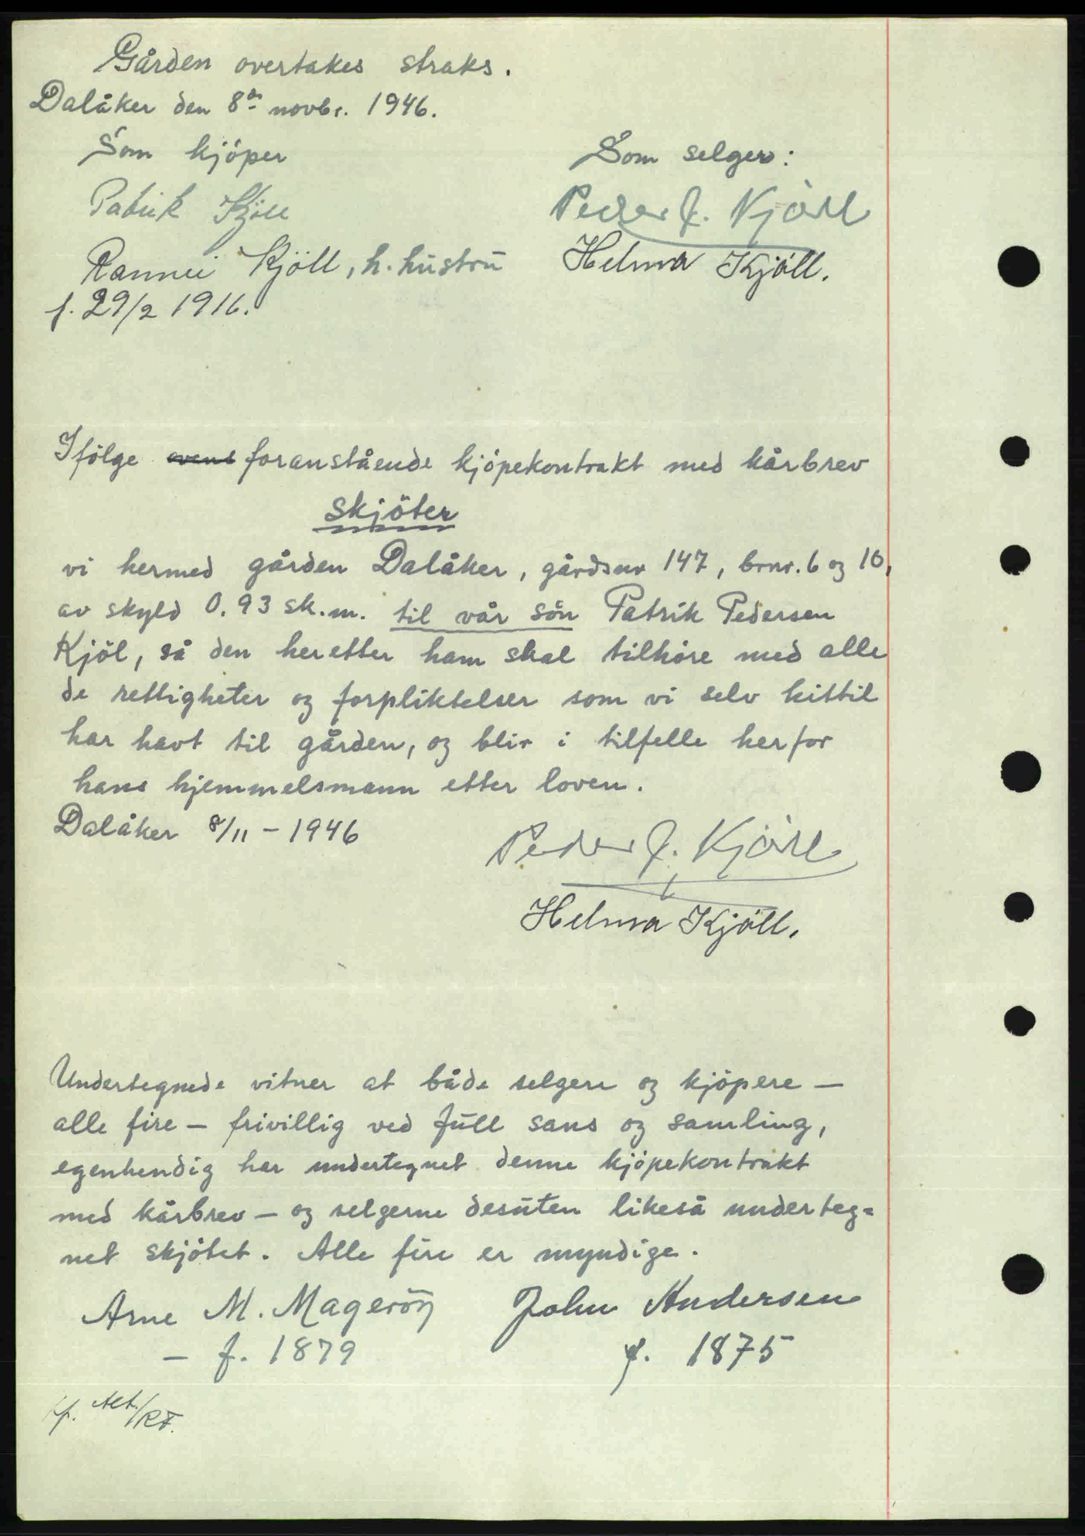 Gården overtakes straks.
Dalåker den 8de novbr. 1946.
Som kjöper
Som selger:
Patrik Kjöll
Peder J. Kjöll
Rannei Kjöll, h. hustru
Helma Kjöll.
f. 29/2 1916.
Ifölge foranstående kjöpekontrakt med kårbrev
skjöter
vi hermed gården Dalåker, gårdsnr 147, brnr. 6 og 10,
av skyld 0.93 sk.m. til vår sön Patrik Pedersen
Kjöl, så den heretter ham skal tilhöre med alle
de rettigheter og forpliktelser som vi selv hittil
har havt til gården, og blir i tilfelle herfor
hans hjemmelsmann etter loven.
Dalåker 8/11 - 1946
Peder J. Kjöll
Helma Kjöll.
Undertegnede vitner at både selgere og kjöpere —
alle fire — frivillig ved full sans og samling,
egenhendig har undertegnet denne kjöpekontrakt
med kårbrev — og selgerne desuten likeså underteg=
net skjötet. Alle fire er myndige.
Arne M. Mageröy
John Andersen
— f. 1879
f. 1875
RF.